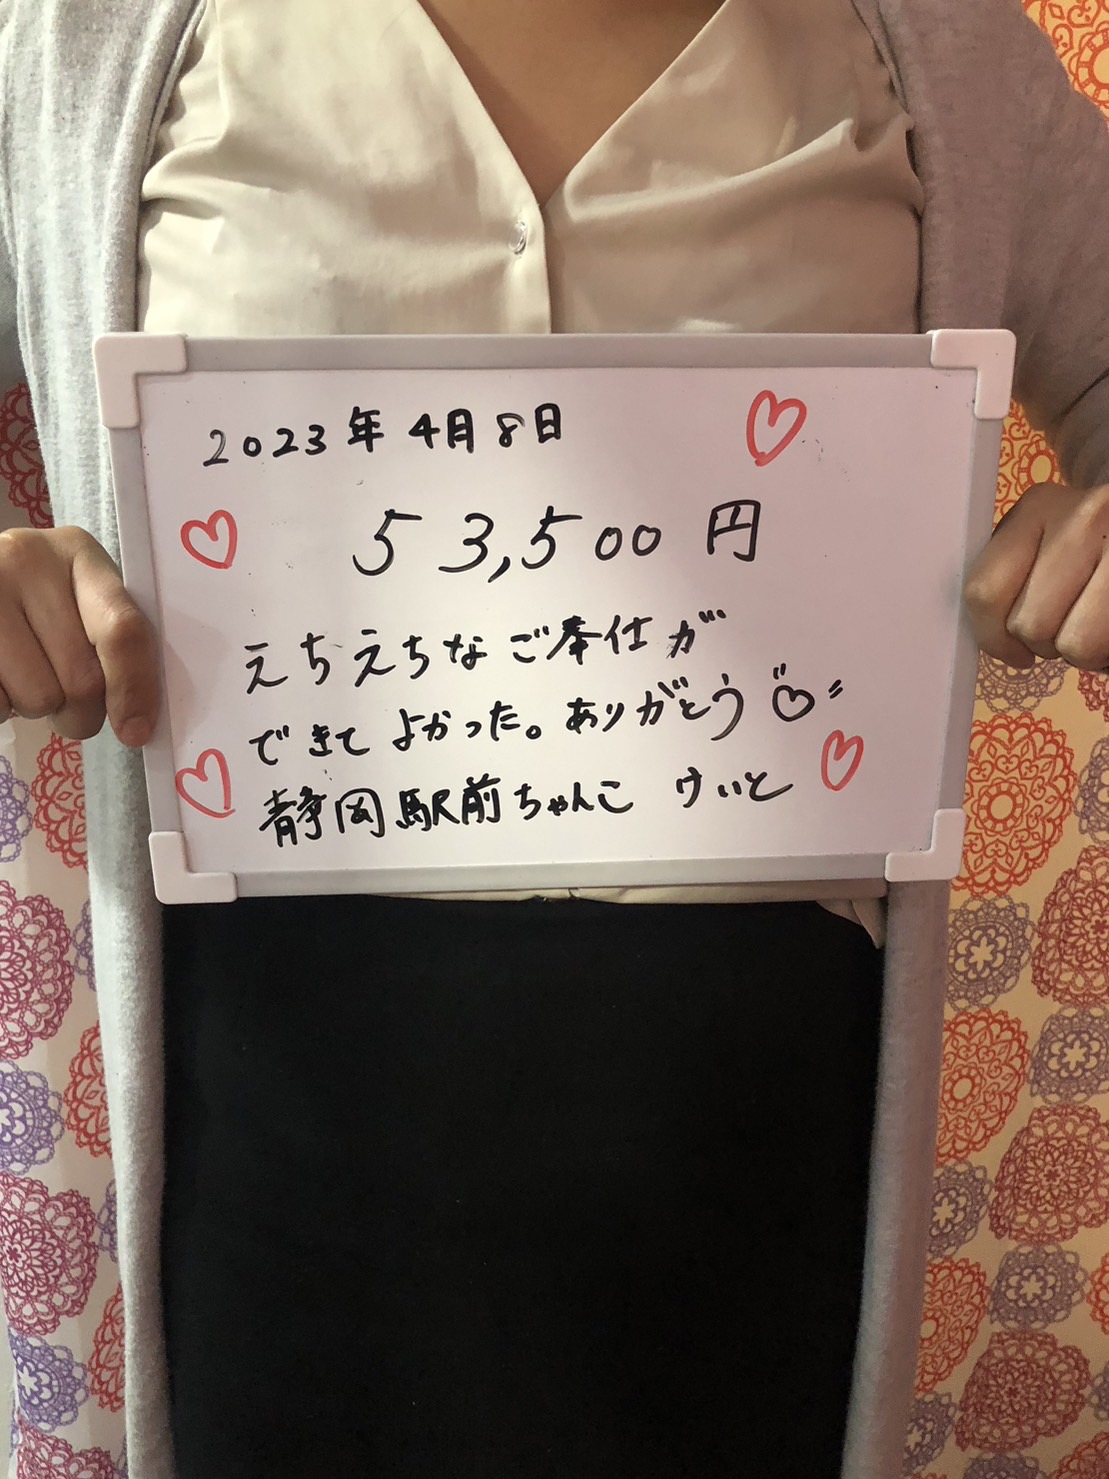 2023年4月8日
53,500円
えちえちなご奉仕が
できてよかった。ありがとう
静岡駅前ちゃんこ けいと